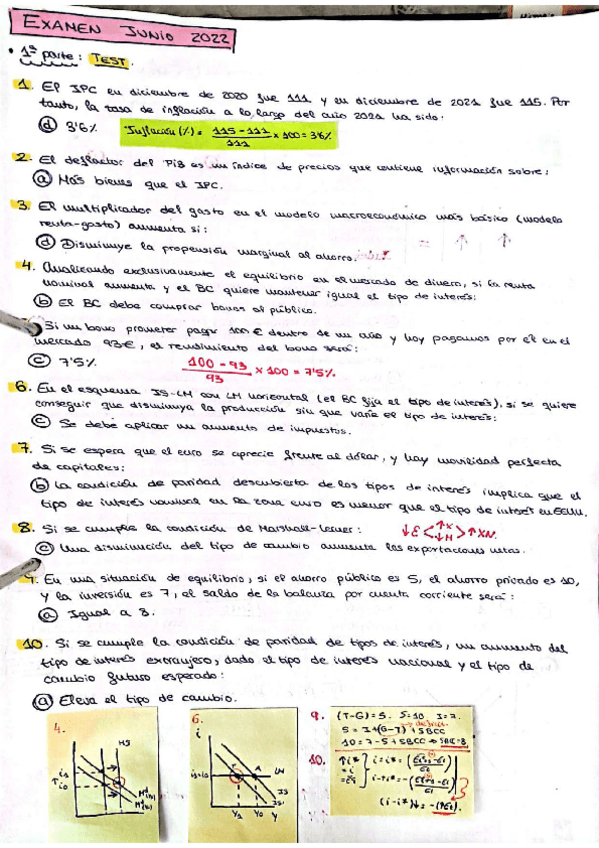 EXAMEN JUNIO 2022
• 1ª parte: TEST.
1. El IPC en diciembre de 2020 fue 111 y en diciembre de 2021 fue 115. Por
tanto, la tasa de inflación a lo largo del año 2021 ha sido:
ⓓ 3'6% Inflación (%) = 115-111 / 111 x 100 = 3'6%
2. El deflactor del PIB es un índice de precios que contiene información sobre:
ⓐ Más bienes que el IPC.
3. El multiplicador del gasto en el modelo macroeconómico más básico (modelo
renta-gasto) aumenta si:
ⓓ Disminuye la propensión marginal al ahorro. = ↑ ↑
4. Analizando exclusivamente el equilibrio en el mercado de dinero, si la renta
nominal aumenta y el BC quiere mantener igual el tipo de interés:
ⓑ El BC debe comprar bonos al público.
Si un bono prometer pagar 100€ dentro de un año y hoy pagamos por él en el
mercado 93€, el rendimiento del bono será:
ⓒ 7'5% 100-93 / 93 x 100 = 7'5%
6. En el esquema IS-LM con LM horizontal (el BC fija el tipo de interés), si se quiere
conseguir que disminuya la producción sin que varíe el tipo de interés:
ⓒ Se debe aplicar un aumento de impuestos.
7. Si se espera que el euro se aprecie frente al dólar, y hay movilidad perfecta
de capitales:
ⓑ La condición de paridad descubierta de los tipos de interés implica que el
tipo de interés nominal en la zona euro es menor que el tipo de interés en EEUU.
8. Si se cumple la condición de Marshall-Lerner: ↓E < ↑X ↓M > ↑XN.
ⓒ Una disminución del tipo de cambio aumenta las exportaciones netas.
9. En una situación de equilibrio, si el ahorro público es 5, el ahorro privado es 10,
y la inversión es 7, el saldo de la balanza por cuenta corriente será:
ⓐ Igual a 8.
10. Si se cumple la condición de paridad de tipos de interés, un aumento del
tipo de interés extranjero, dado el tipo de interés nacional y el tipo de
cambio futuro esperado:
ⓐ Eleva el tipo de cambio.
4.
6.
i
LM
A
IS
IS'
Y1 Y0 Y
9. (T-G)=5. S=10. I=7.
S = I+(G-T)+SBCC
10=7-5+SBCC → SBCC=8
10.